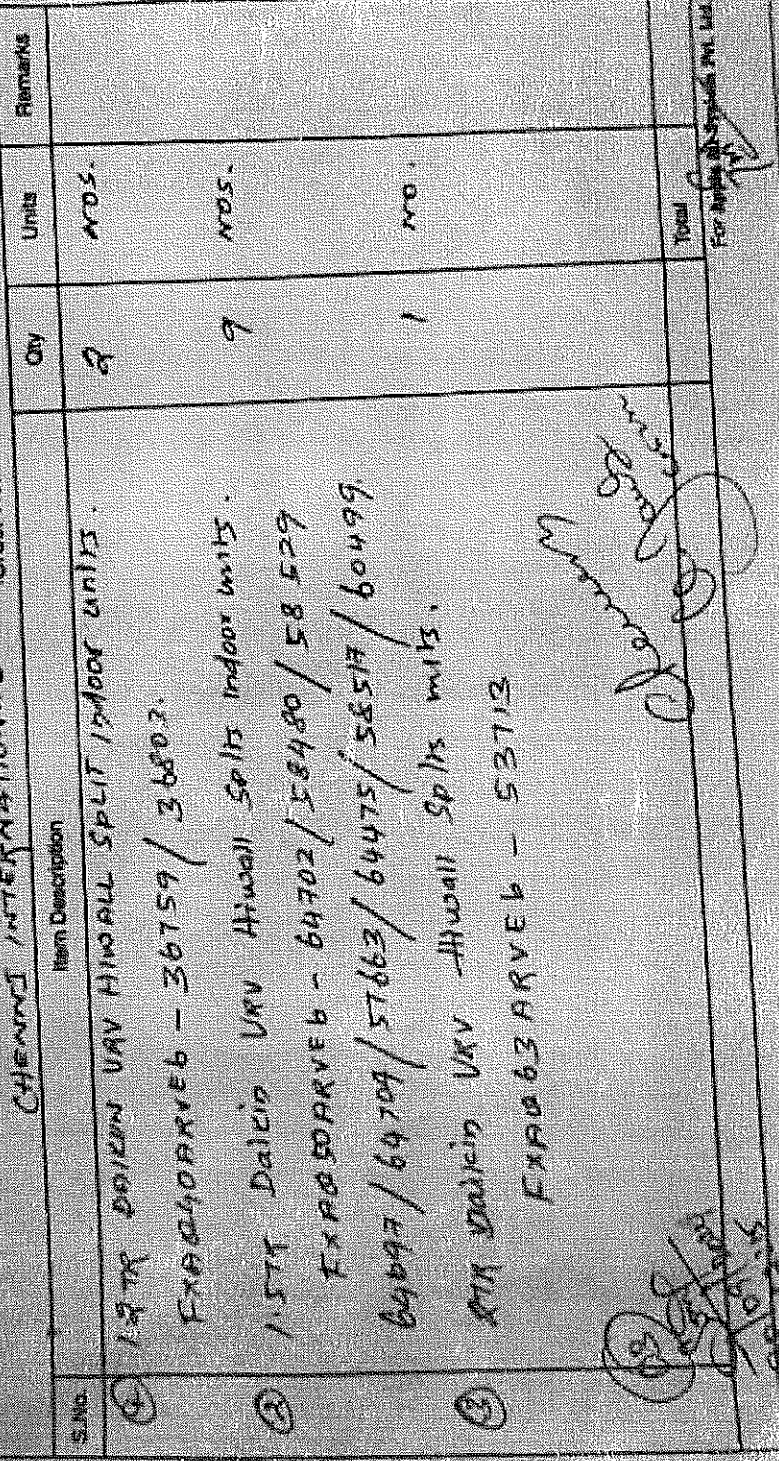 CHENNI INTERNATIONAL
S.No. Item Description Qty Units Remarks
① TR DAIKIN VRV HIWALL SPLIT Indoor units. 2 NOS.
FXAQ40ARVE6 - 36759/ 36803.
② 1.5TR Daikin VRV Hiwall Splts Indoor units. 9 NOS.
FXAQ50ARVE6 - 64702/58480/58529
64697/64709/57663/64475/58517/60499.
③ 2TR Daikin VRV Hiwall Splts units. 1 NO.
FXAQ63ARVE6 - 53713
Total
For System Pvt. Ltd